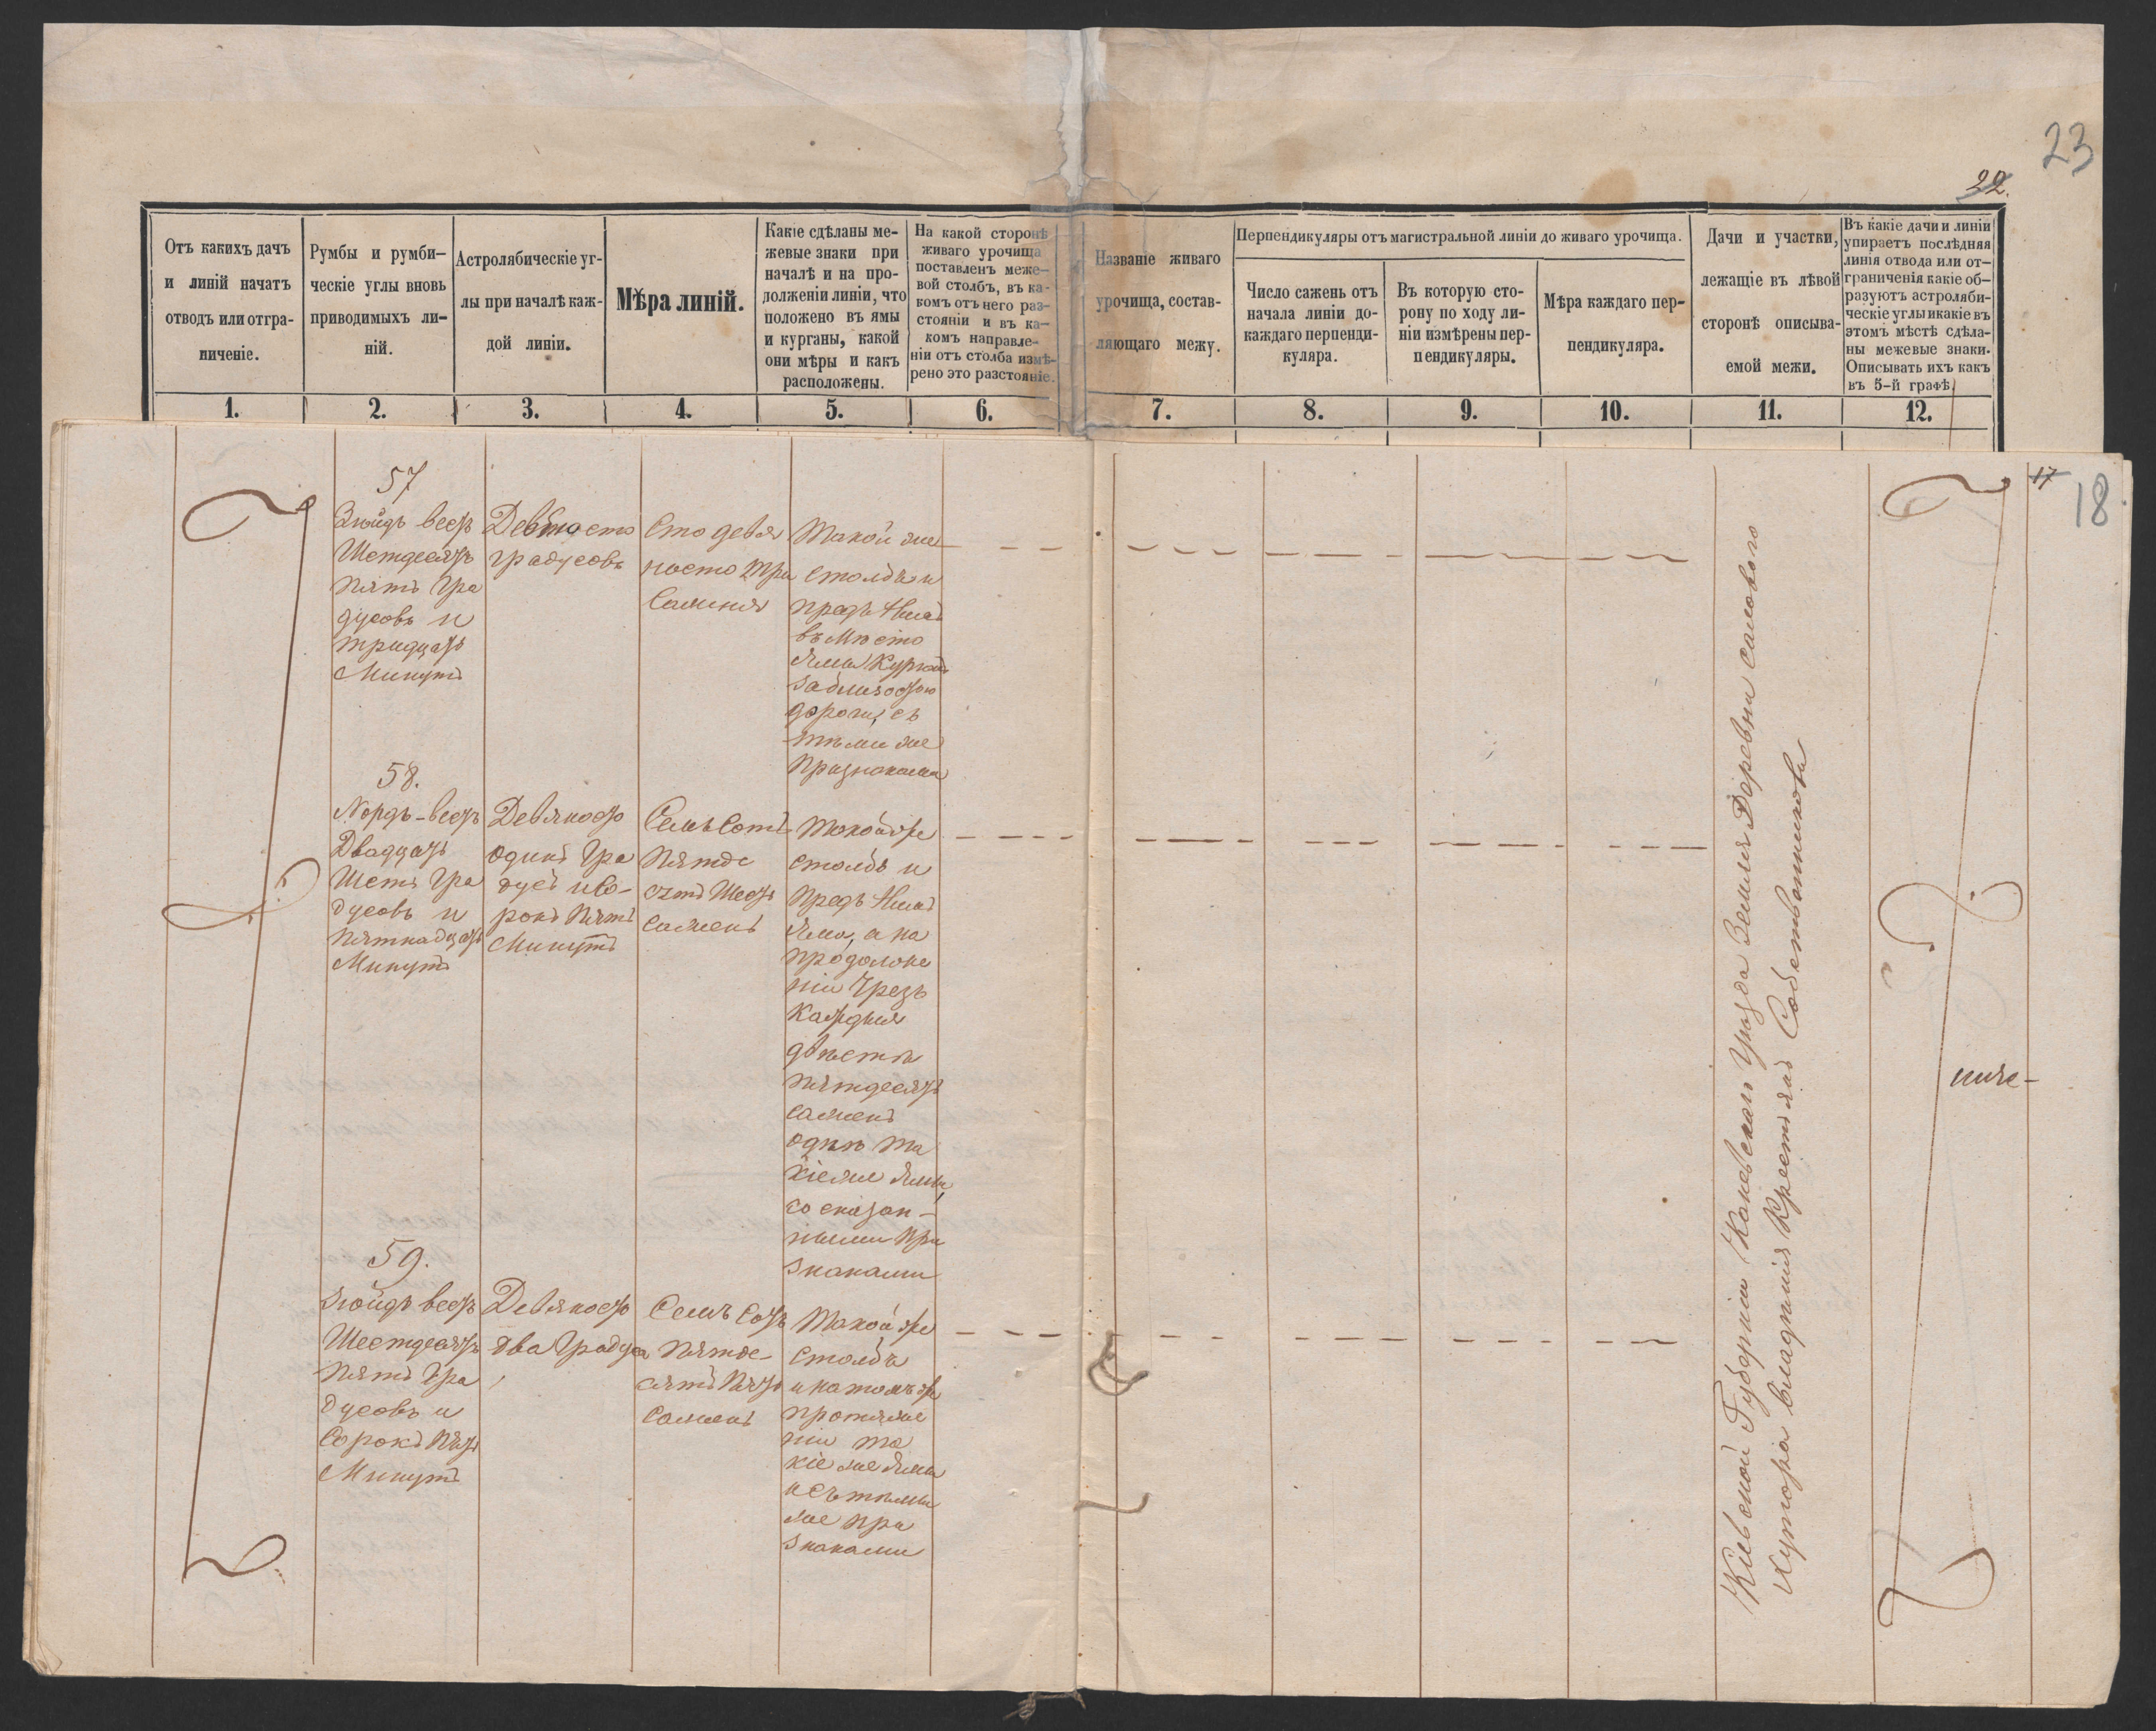 23
22.
Отъ какихъ дачъ
и линій начатъ
отводъ или отгра-
ниченіе.
Румбы и румби-
ческіе углы вновь
приводимыхъ ли-
ній.
Астролябическіе уг-
лы при началѣ каж-
дой линіи.
Мѣра линій.
Какіе сдѣланы ме-
жевые знаки при
началѣ и на про-
долженіи линіи, что
положено въ ямы
и курганы, какой
они мѣры и какъ
расположены.
На какой сторонѣ
живаго урочища
поставленъ меже-
вой столбъ, въ ка-
комъ отъ него раз-
стояніи и въ ка-
комъ направле-
ніи отъ столба измѣ-
рено это разстояніе.
Названіе живаго
урочища, состав-
ляющаго межу.
Перпендикуляры отъ магистральной линіи до живаго урочища.
Число сажень отъ
начала линіи до-
каждаго перпенди-
куляра.
Въ которую сто-
рону по ходу ли-
ніи измѣрены пер-
пендикуляры.
Мѣра каждаго пер-
пендикуляра.
Дачи и участки,
лежащіе въ лѣвой
сторонѣ описыва-
емой межи.
Въ какіе дачи и линіи
упираетъ послѣдняя
линія отвода или от-
граниченія какіе об-
разуютъ астроляби-
ческіе углы и какіе въ
этомъ мѣстѣ сдѣла-
ны межевые знаки.
Описывать ихъ какъ
въ 5-й графѣ.
1. 2. 3. 4. 5. 6. 7. 8. 9. 10. 11. 12.
17
18
57
Зюйдъ вестъ
Шетдесятъ
пять Гра
дусовъ и
тридцать
Минутъ
Девяносто
градусовъ
Сто девя
носто три
Сажня
Такой же
столбъ и
предъ нимъ
въ мѣсто
ямы Курганъ
за близостью
дороги, съ
тѣми же
признаками
58.
Nордъ-вестъ
Двадцать
Шеть Гра
дусовъ и
пятнадцать
Минутъ
Девяносто
одинъ Гра
дусъ и со-
рокъ пять
Минутъ
Семь Сотъ
пятде
сятъ Шесть
сажень
Такой же
столбъ и
предъ нимъ
яма, а на
продолже
ніи чрезъ
Каждыя
двѣсти
пятдесятъ
сажень
однѣ та
кіе же ямы,
со сказан-
ными при
знаками
59.
Зюйдъ вестъ
Шестдесятъ
пять Гра
дусовъ и
Сорокъ пять
Минутъ
Девяносто
два Градуса
Семь Сотъ
Пятде-
сятъ пять
Сажень
Такой же
столбъ
и на томъ же
протяже
ніи та
кіе же ямы
и съ тѣми
же при
знаками
Кіевской Губерніи Каневскаго Уѣзда Земля Деревни самокого
Хутора владѣнія Крестьянъ Собственниковъ
ниже-